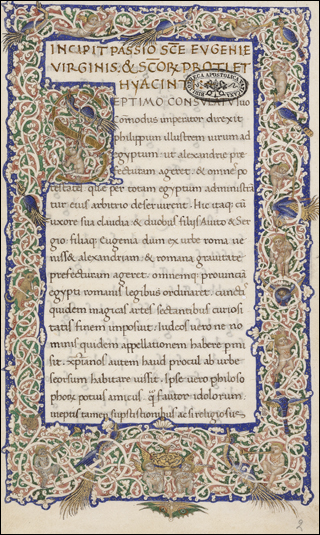 INCIPIT PASSIO SCE EUGENIE
VIRGINIS & SCOR PROTI ET
HYACINT
SEPTIMO CONSULATU suo
Comodus imperator direxit
philippum illustrem uirum ad
egyptum. ut alexandrie pre
fecturam ageret. & omnes po
testates que per totam egyptum administra
tur eius arbitrio deseruirent. Hic itaq; cũ
uxore sua claudia. & duobus filiis Auito & Ser
gio. filiaq; Eugenia dum ex urbe roma ue
niss& alexandriam. & romana grauitate
prefecturam ageret. omnemq; prouinciã
egypti romanis legibus ordinaret. cunctis
quidem magicas artes sectantibus curiosi
tatis finem imposuit. Iudeos uero ne no
minis quidem appellationem habere permi
sit. xpianos autem haud procul ab urbe
seorsum habitare iussit. Ipse uero philoso
phorum potius amicus. quam fautor idolorum.
ineptis tamen superstitionibus ac si religiosus
2